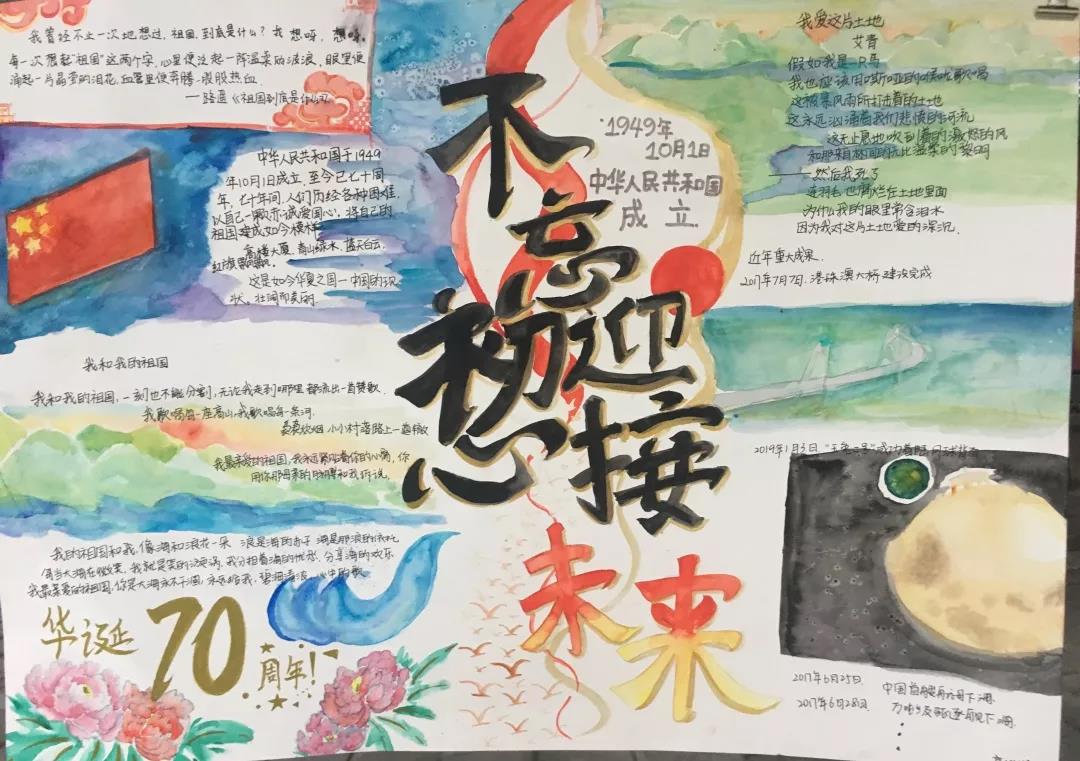 我曾经不止一次地想过，祖国，到底是什么？我想呀，想呀，
每一次想起"祖国"这两个字，心里便泛起一阵温柔的波浪，眼里便
涌起一片晶莹的泪花，血管里便奔腾一股股热血。
——路遥《祖国到底是什么》
中华人民共和国于1949
年10月1日成立，至今已七十周
年，七十年间，人们历经各种困难，
以自己一颗赤诚爱国心，将自己的
祖国建成如今模样
高楼大厦，青山绿水，蓝天白云，
红旗
这是如今华夏之国—中国的现
状，壮阔而美丽。
我和我的祖国
我和我的祖国，一刻也不能分割，无论我走到哪里都流出一首赞歌。
我歌唱每一座高山，我歌唱每一条河。
袅袅炊烟 小小村落 路上一道辙
我最亲爱的祖国，我永远紧贴着你的心窝，你
用你那母亲的脉搏和我诉说。
我的祖国和我，像海和浪花一朵 浪是海的赤子 海是那浪的依托
每当大海在微笑，我就是笑的漩涡，我分担着海的忧愁，分享海的欢乐
我最亲爱的祖国，你是大海永不干涸，永远给我，碧浪清波，心中的歌
华诞
70
周年！
不忘初心
迎接未来
1949年
10月1日
中华人民共和国
成立
我爱这片土地
艾青
假如我是一只鸟
我也应该用嘶哑的喉咙歌唱
这被暴风雨所打击着的土地
这永远汹涌着我们悲愤的河流
这无止息地吹刮着的激怒的风
和那来自林间的无比温柔的黎明
——然后我死了
连羽毛也腐烂在土地里面
为什么我的眼里常含泪水
因为我对这片土地爱的深沉.
近年重大成果.
2017年7月7日，港珠澳大桥建设完成
2019年1月3日
2017年6月25日
中国首
2017年6月28日
下水